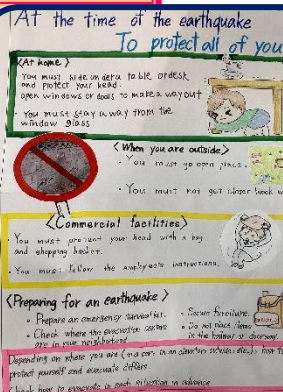 At the time of the earthquake
To protect all of you
<At home>
You must hide under a table or desk
and protect your head.
open windows or doors to make a way out
You must stay away from the
window glass
<When you are outside>
You must go open place.
You must not get closer
<Commercial facilities>
You must protect your head with a bag
and shopping basket.
You must follow the employee's instructions.
<Preparing for an earthquake>
Prepare an emergency
Check where the evacuation centers
are in your neighborhood
Secure furniture.
Do not place items
in the hallway or doorway.
Depending on where you are how to
protect yourself and evacuate differs
Check how to evacuate in each situation in advance